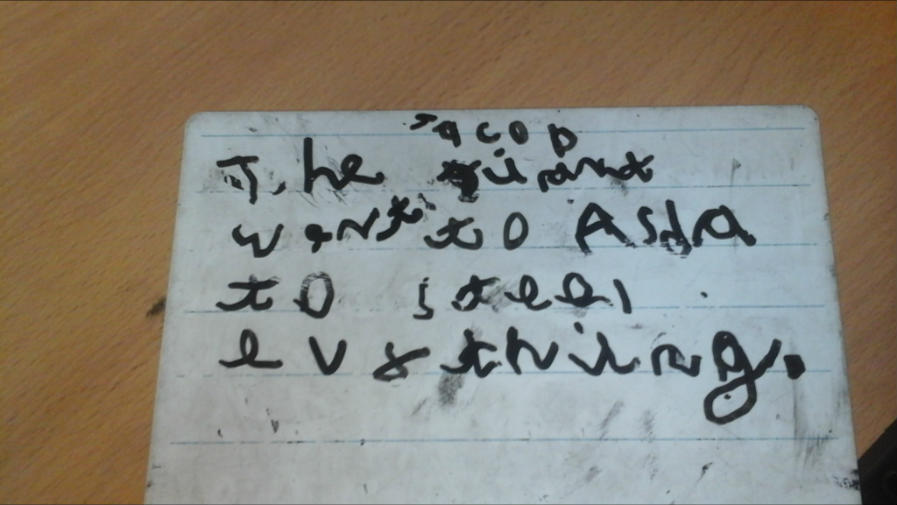 Jacob
The giant
went to Asda
to steel
evrthing.